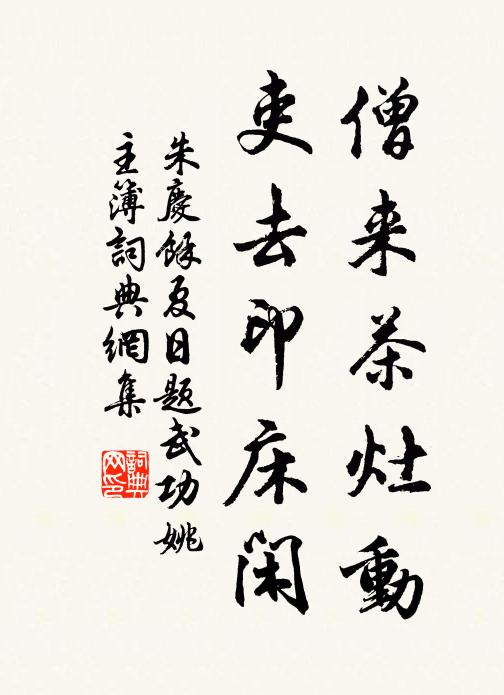 僧来茶灶動
吏去印床閑
朱慶餘夏日題武功姚
主簿詞典網集
詞典
网印